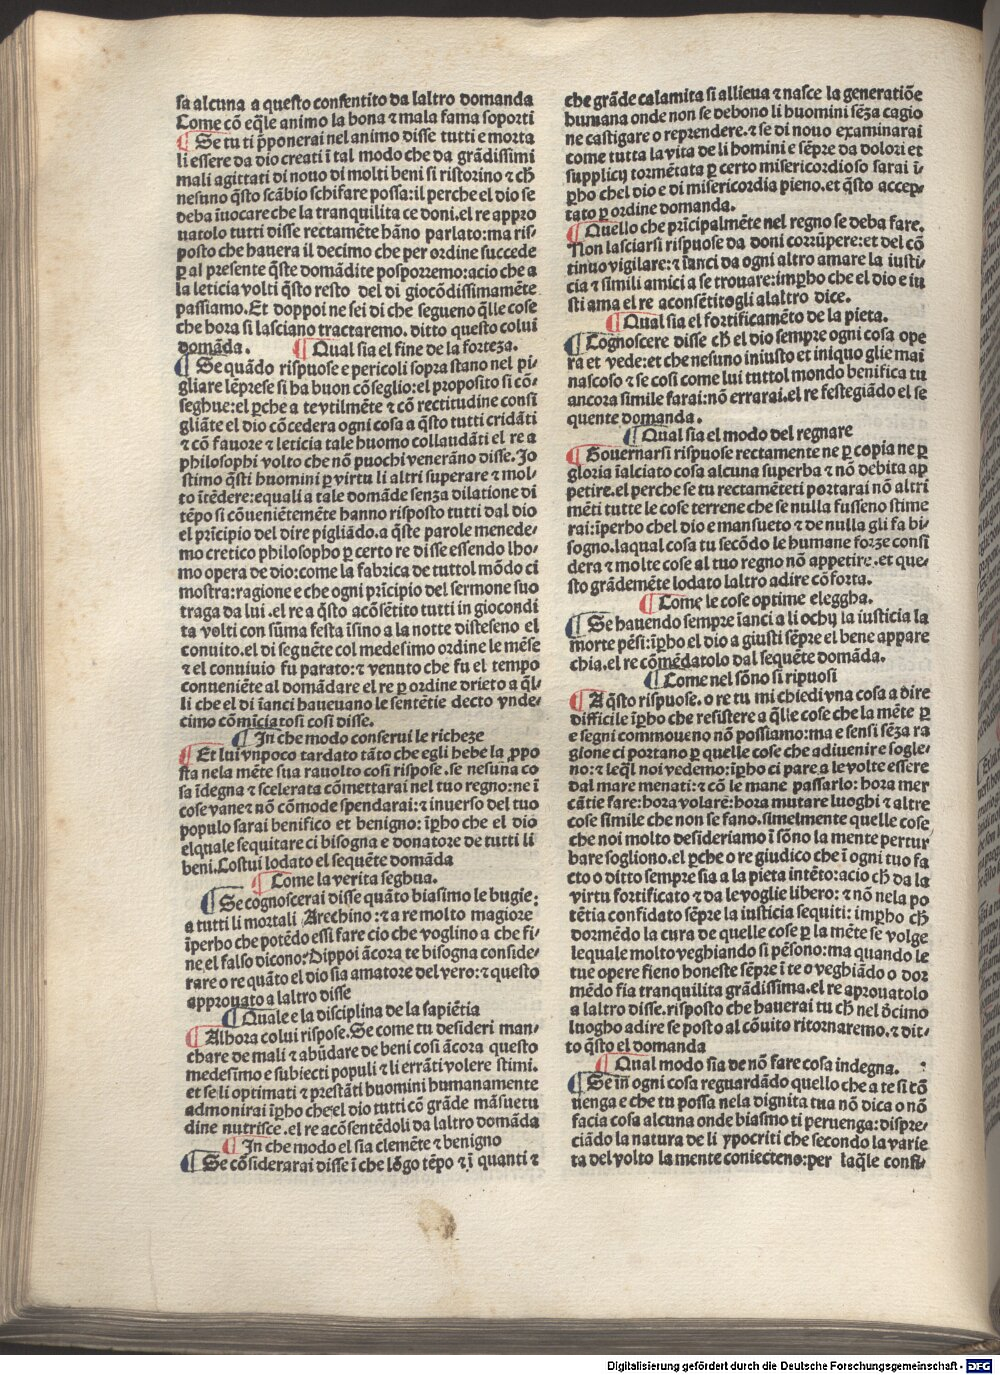 sa alcuna a questo consentito da laltro domanda
Come cō eq̄le animo la bona ⁊ mala fama soporti
¶ Se tu ti p̄ponerai nel animo disse tutti e morta
li essere da dio creati ī tal modo che da grādissimi
mali agittati di nouo di molti beni si ristorino ⁊ cħ
nesuno q̄sto scābio schifare possa:il perche el dio se
deba īuocare che la tranquilita ce doni.el re appro
uatolo tutti disse rectamēte hāno parlato:ma ris/
posto che hauera il decimo che per ordine succede
ꝑ al presente q̄ste domādite posporremo:acio che a
la leticia volti q̄sto resto del di giocōdissimamēte
passiamo.Et doppoi ne sei di che segueno q̄lle cose
che hora si lasciano tractaremo. ditto questo colui
domāda. ¶ Qual sia el fine de la forteza.
¶ Se quādo rispuose e pericoli sopra stano nel pi/
gliare lēprese si ha buon cōseglio:el proposito si cō/
seghue:el ꝑche a te vtilmēte ⁊ cō rectitudine consi
gliāte el dio cōcedera ogni cosa a q̄sto tutti cridāti
⁊ cō fauore ⁊ leticia tale huomo collaudāti el re a
philosophi volto che nō puochi venerāno disse. Io
stimo q̄sti huomini ꝑ virtu li altri superare ⁊ mol/
to ītēdere:equali a tale domāde senza dilatione di
tēpo si cōueniētemēte hanno risposto tutti dal dio
el prīcipio del dire pigliādo.a q̄ste parole menede/
mo cretico philosopho ꝑ certo re disse essendo lho/
mo opera de dio:come la fabrica de tuttol mōdo ci
mostra:ragione e che ogni prīcipio del sermone suo
traga da lui .el re a q̄sto acōsētito tutti in giocondi
ta volti con sūma festa īsino a la notte disteseno el
conuito.el di seguēte col medesimo ordine le mēse
⁊ el conuiuio fu parato:⁊ venuto che fu el tempo
conueniēte al domādare el re ꝑ ordine drieto a q̄l/
li che el di īanci haueuano le sentētie decto vnde/
cimo cōmīciatosi cosi disse.
¶ In che modo conserui le richeze
¶ Et lui vnpoco tardato tāto che egli hebe la ꝓpo
sta nela mēte sua rauolto cosi rispose .se nesūna co
sa īdegna ⁊ scelerata cōmettarai nel tuo regno:ne ī
cose vane ⁊ nō cōmode spendarai:⁊ inuerso del tuo
populo sarai benifico et benigno: īꝑho che el dio
elquale sequitare ci bisogna e donatore de tutti li
beni.Costui lodato el sequēte domāda
¶ Come la verita seghua.
¶ Se cognoscerai disse quāto biasimo le bugie:
a tutti li mortali Arechino:⁊ a re molto magiore
īperho che potēdo essi fare cio che voglino a che fi/
ne el falso dicono:Dippoi ācora te bisogna conside/
rare o re quāto el dio sia amatore del vero:⁊ questo
approuato a laltro disse
¶ Quale e la disciplina de la sapiētia
¶ Alhora colui rispose.Se come tu desideri man/
chare de mali ⁊ abūdare de beni cosi ācora questo
medesimo e subiecti populi ⁊ li errāti volere stimi.
et se li optimati ⁊ prestāti huomini humanamente
admonirai īꝑho che el dio tutti cō grāde māsuetu
dine nutrisce.el re acōsentēdoli da laltro domāda
¶ In che modo el sia clemēte ⁊ benigno
¶ Se cōsiderarai disse ī che lōgo tēpo ⁊ ī quanti ⁊
che grāde calamita si allieua ⁊ nasce la generatiōe
humana onde non se debono li huomini sēza cagio
ne castigare o reprendere.⁊ se di nouo examinarai
come tutta la vita de li homini e sēpre da dolori et
supplicij tormētata ꝑ certo misericordioso sarai ī/
ꝑho chel dio e di misericordia pieno.et q̄sto accep/
tato ꝑ ordine domanda.
¶ Quello che prīcipalmēte nel regno se deba fare.
Non lasciarsi rispuose da doni corrūpere:et del cō
tinuo vigilare:⁊ īanci da ogni altro amare la iusti/
cia ⁊ simili amici a se trouare:imꝑho che el dio e iu
sti ama el re aconsētitogli alaltro dice.
¶ Qual sia el fortificamēto de la pieta.
¶ Cognoscere disse cħ el dio sempre ogni cosa ope
ra et vede:et che nesuno iniusto et iniquo glie mai
nascoso ⁊ se cosi come lui tuttol mondo benifica tu
ancora simile farai:nō errarai.el re festegiādo el se
quente domanda.
¶ Qual sia el modo del regnare
¶ Gouernarsi rispuose rectamente ne ꝑ copia ne ꝑ
gloria īalciato cosa alcuna superba ⁊ nō debita ap
petire.el perche se tu rectamēteti portarai nō altri
mēti tutte le cose terrene che se nulla fusseno stime
rai:īperho chel dio e mansueto ⁊ de nulla gli fa bi/
sogno.laqual cosa tu secōdo le humane forze consi
dera ⁊ molte cose al tuo regno nō appetire.et que/
sto grādemēte lodato laltro adire cōforta.
¶ Come le cose optime eleggha.
¶ Se hauendo sempre īanci a li ochij la iusticia la
morte pēsi:īꝑho el dio a giusti sēpre el bene appare
chia.el re cōmēdatolo dal sequēte domāda.
¶ Come nel sōno si ripuosi
¶ A q̄sto rispuose. o re tu mi chiedi vna cosa a dire
difficile īꝑho che resistere a q̄lle cose che la mēte ꝑ
e segni commoueno nō possiamo:ma e sensi sēza ra
gione ci portano ꝑ quelle cose che adiuenire sogle/
no:⁊ leq̄l noi vedemo:īꝑho ci pare a le volte essere
dal mare menati:⁊ cō le mane passarlo: hora mer
cātie fare:hora volare:hora mutare luoghi ⁊ altre
cose simile che non se fano.simelmente quelle cose
che noi molto desideriamo ī sōno la mente pertur
bare sogliono.el ꝑche o re giudico che ī ogni tuo fa
cto o ditto sempre sia a la pieta intēto:acio cħ da la
virtu fortificato ⁊ da le voglie libero: ⁊ nō nela po
tētia confidato sēpre la iusticia sequiti: imꝑho cħ
dormēdo la cura de quelle cose ꝑ la mēte se volge
lequale molto veghiando si pēsono:ma quando le
tue opere fieno honeste sēpre ī te o veghiādo o dor
mēdo fia tranquilita grādissima.el re aprouatolo
a laltro disse.risposto che hauerai tu cħ nel ōcimo
luogho adire se posto al cōuito ritornaremo.⁊ dit/
to q̄sto el domanda
¶ Qual modo sia de nō fare cosa indegna.
¶ Se in ogni cosa reguardādo quello che a te si cō
uenga e che tu possa nela dignita tua nō dica o nō
facia cosa alcuna onde biasmo ti peruenga:dispre/
ciādo la natura de li ypocriti che secondo la varie
ta del volto la mente coniecteno:per laq̄le consi/
Digitalisierung gefördert durch die Deutsche Forschungsgemeinschaft - DFG